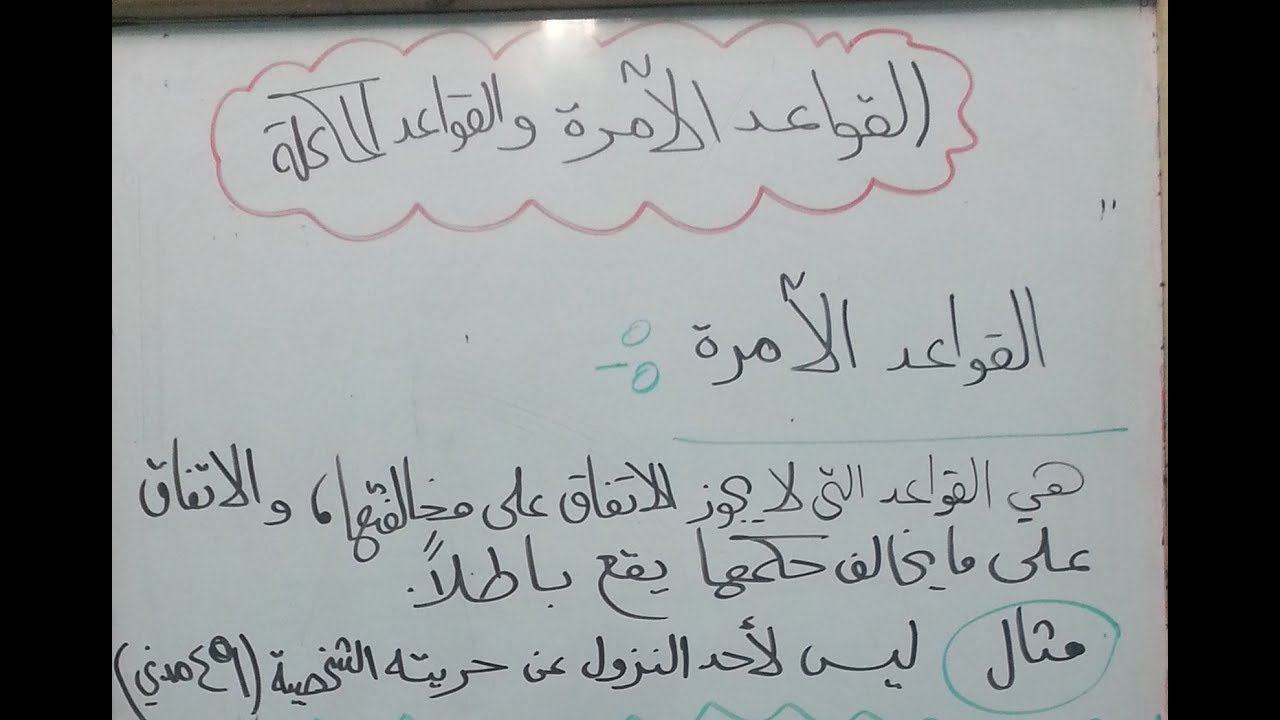 القواعد الآمرة والقواعد المكملة
القواعد الآمرة :-
هي القواعد التي لا يجوز الاتفاق على مخالفتها، والاتفاق
على ما يخالف حكمها يقع باطلاً.
مثال ليس لأحد النزول عن حريته الشخصية (٤٩ مدني)